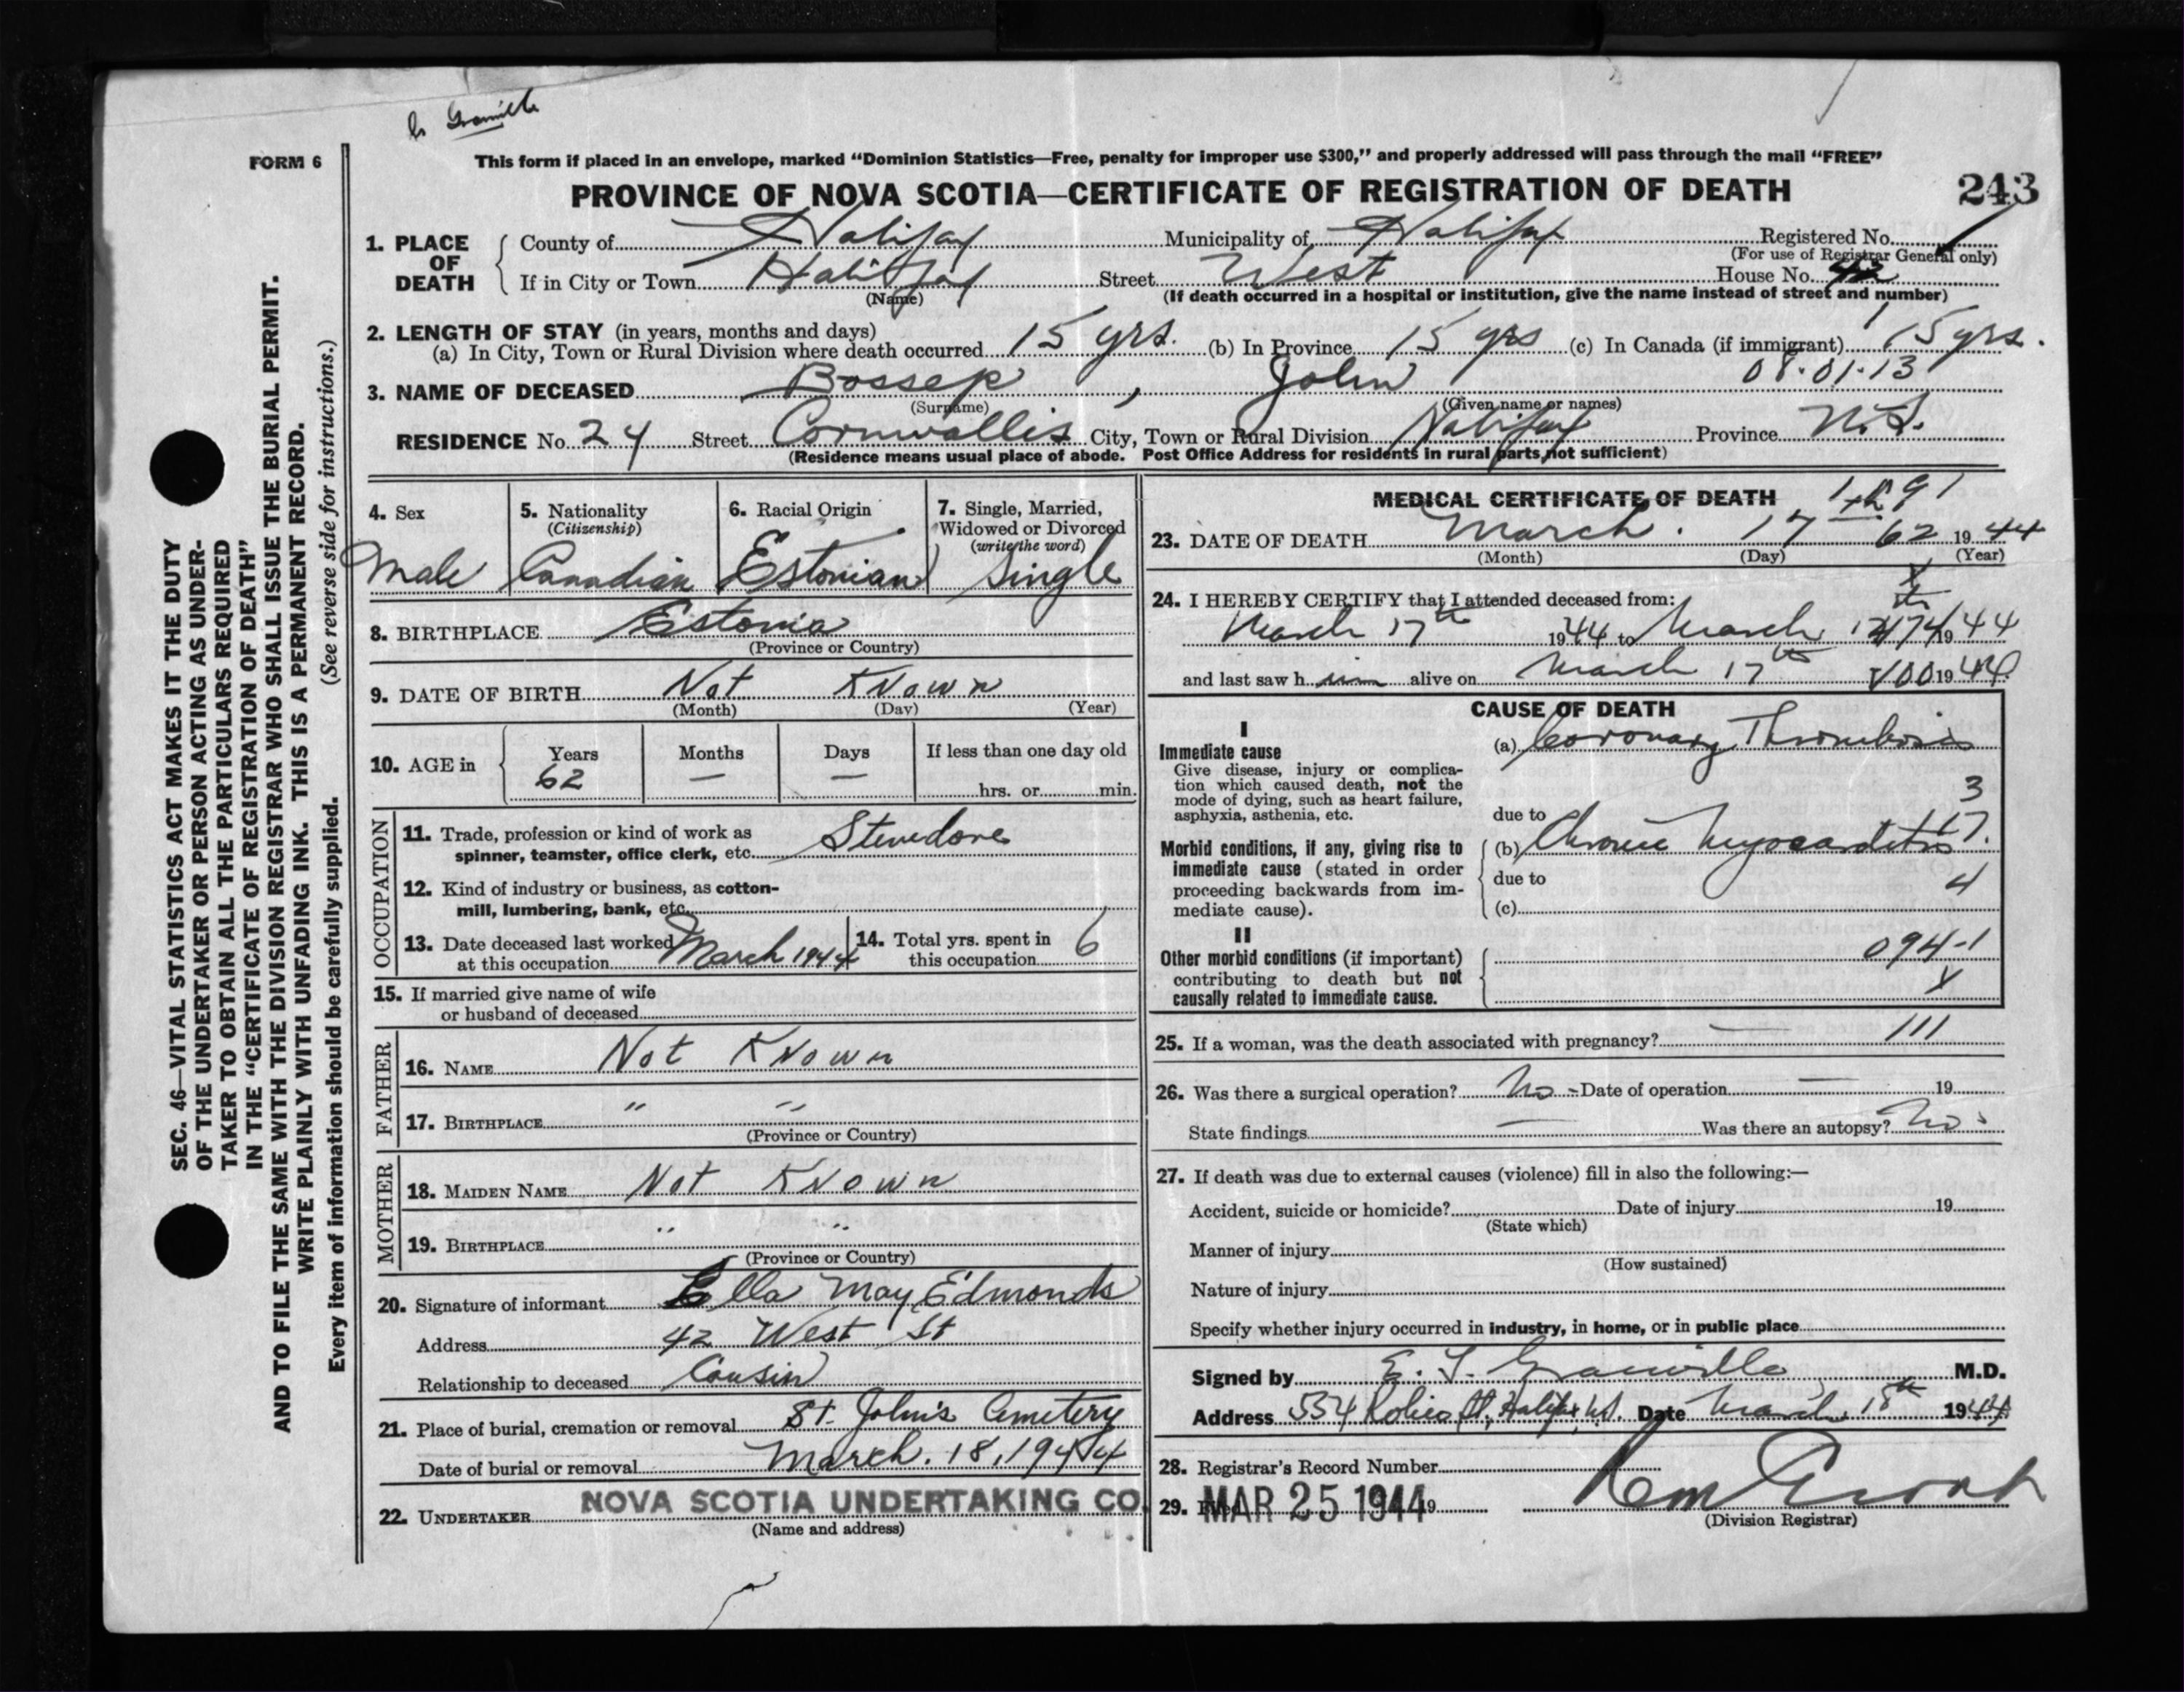 Granville
FORM 6
This form if placed in an envelope, marked “Dominion Statistics—Free, penalty for improper use $300,” and properly addressed will pass through the mail “FREE”
PROVINCE OF NOVA SCOTIA—CERTIFICATE OF REGISTRATION OF DEATH
243
1. PLACE OF DEATH
County of Halifax Municipality of Halifax Registered No.
(For use of Registrar General only)
If in City or Town Halifax Street West House No. 42
(Name) (If death occurred in a hospital or institution, give the name instead of street and number)
2. LENGTH OF STAY (in years, months and days)
(a) In City, Town or Rural Division where death occurred 15 yrs. (b) In Province 15 yrs (c) In Canada (if immigrant) 15 yrs.
08.01.13
3. NAME OF DECEASED Bossep, John
(Surname) (Given name or names)
RESIDENCE No. 24 Street Cornwallis City, Town or Rural Division Halifax Province N.S.
(Residence means usual place of abode. Post Office Address for residents in rural parts not sufficient)
4. Sex
Male
5. Nationality
(Citizenship)
Canadian
6. Racial Origin
Estonian
7. Single, Married, Widowed or Divorced
(write the word)
Single
8. BIRTHPLACE Estonia
(Province or Country)
9. DATE OF BIRTH Not Known
(Month) (Day) (Year)
10. AGE in
Years Months Days If less than one day old
62 — — hrs. or min.
OCCUPATION
11. Trade, profession or kind of work as
spinner, teamster, office clerk, etc. Stevedore
12. Kind of industry or business, as cotton-
mill, lumbering, bank, etc.
13. Date deceased last worked
at this occupation March 1944
14. Total yrs. spent in
this occupation 6
15. If married give name of wife
or husband of deceased
FATHER
16. NAME Not Known
17. BIRTHPLACE " "
(Province or Country)
MOTHER
18. MAIDEN NAME Not Known
19. BIRTHPLACE " "
(Province or Country)
20. Signature of informant Ella May Edmonds
Address 42 West St
Relationship to deceased Cousin
21. Place of burial, cremation or removal St. John's Cemetery
Date of burial or removal March. 18, 1944
22. UNDERTAKER NOVA SCOTIA UNDERTAKING CO.
(Name and address)
MEDICAL CERTIFICATE OF DEATH
23. DATE OF DEATH March. 17th 62 1944
(Month) (Day) (Year)
24. I HEREBY CERTIFY that I attended deceased from:
March 17th 1944 to March 1944
and last saw him alive on March 17th 1944
CAUSE OF DEATH
I
Immediate cause
Give disease, injury or complica-
tion which caused death, not the
mode of dying, such as heart failure,
asphyxia, asthenia, etc.
(a) Coronary Thrombosis
3
due to
Morbid conditions, if any, giving rise to
immediate cause (stated in order
proceeding backwards from im-
mediate cause).
(b) Chronic Myocarditis 17.
due to 4
(c)
II
Other morbid conditions (if important)
contributing to death but not
causally related to immediate cause.
094-1
X
25. If a woman, was the death associated with pregnancy? — 111
26. Was there a surgical operation? No - Date of operation — 19
State findings — Was there an autopsy? No.
27. If death was due to external causes (violence) fill in also the following:—
Accident, suicide or homicide? Date of injury 19
(State which)
Manner of injury
(How sustained)
Nature of injury
Specify whether injury occurred in industry, in home, or in public place
Signed by Granville M.D.
Address 554 Robie St, Halifax, N.S. Date March 18th 1944
28. Registrar's Record Number
29. Filed MAR 25 1944 19
(Division Registrar)
SEC. 46—VITAL STATISTICS ACT MAKES IT THE DUTY
OF THE UNDERTAKER OR PERSON ACTING AS UNDER-
TAKER TO OBTAIN ALL THE PARTICULARS REQUIRED
IN THE “CERTIFICATE OF REGISTRATION OF DEATH”
AND TO FILE THE SAME WITH THE DIVISION REGISTRAR WHO SHALL ISSUE THE BURIAL PERMIT.
WRITE PLAINLY WITH UNFADING INK. THIS IS A PERMANENT RECORD.
Every item of information should be carefully supplied. (See reverse side for instructions.)